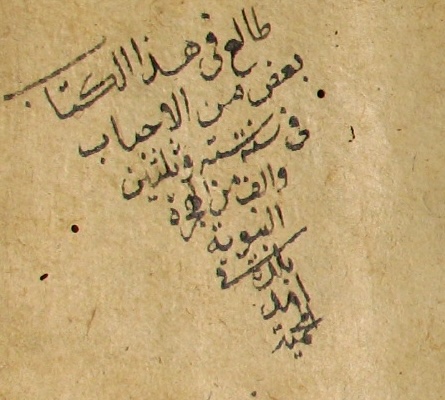 طالع فى هذا الكتاب
بعض من الاحباب
فى سنة ستة وثلثين
والف من الهجرة
النبوية